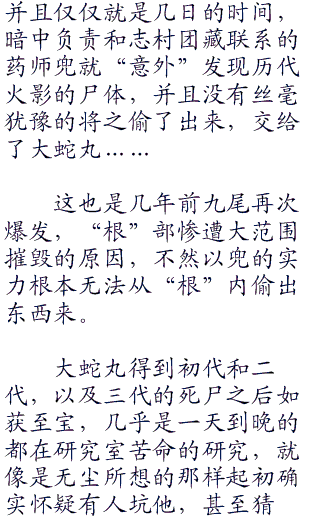 并且仅仅就是几日的时间，
暗中负责和志村团藏联系的
药师兜就“意外”发现历代
火影的尸体，并且没有丝毫
犹豫的将之偷了出来，交给
了大蛇丸……
这也是几年前九尾再次
爆发，“根”部惨遭大范围
摧毁的原因，不然以兜的实
力根本无法从“根”内偷出
东西来。
大蛇丸得到初代和二
代，以及三代的死尸之后如
获至宝，几乎是一天到晚的
都在研究室苦命的研究，就
像是无尘所想的那样起初确
实怀疑有人坑他，甚至猜